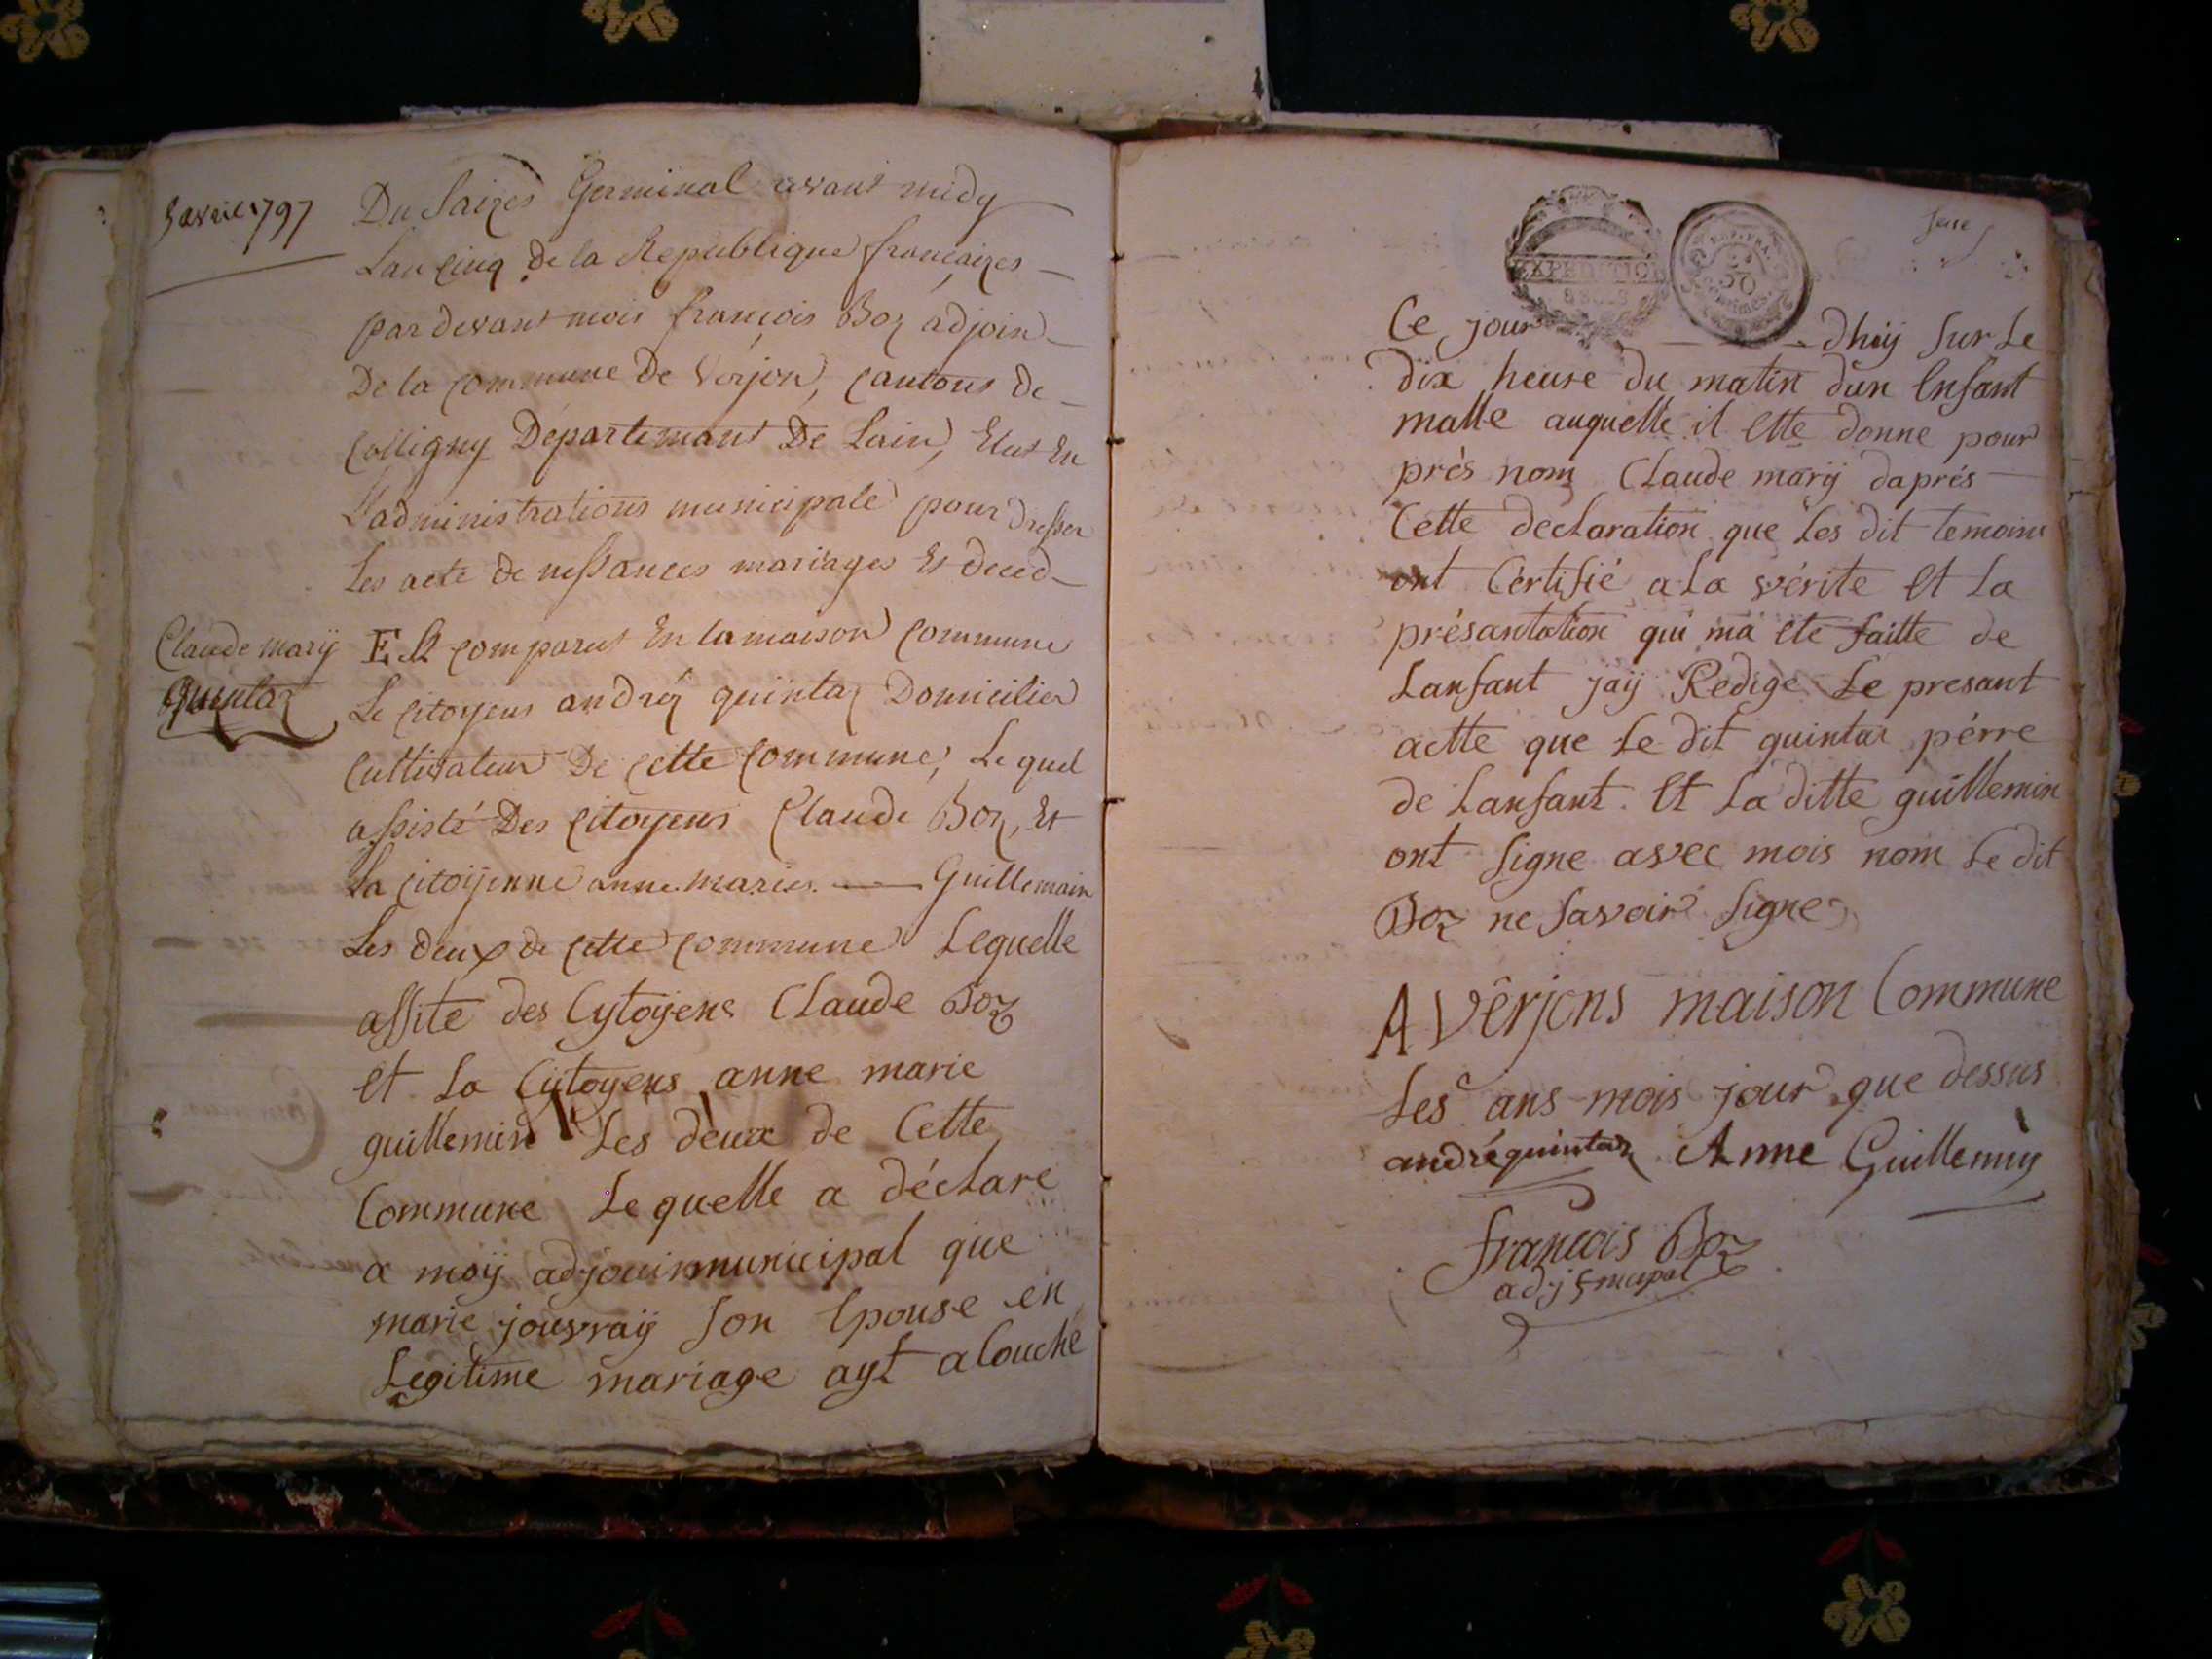 5 avril 1797
Du Saizes Germinal avant midy
Lan cinq de la Republique francaizes
par devant mois françois Boz adjoin
De la commune de Verjon, cantons de
Colligny Departemant De Lain, Elut En
L'administrations municipale pour dresser
Les acte de nessances mariages Et deced
Claude marÿ
quintaz
Est comparut En la maison commune
Le citoyens andréz quintaz Domicilier
Cultivateur De cette commune, Le quel
assisté Des citoyens Claude Boz, Et
La citoÿenne anne marie Guillemain
Les deux de cette commune Lequelle
assite des Cytoÿens Claude Boz
et La Cÿtoyens anne marie
guillemin Les deux de Cette
Commune Le quelle a déclare
a moÿ adjoin municipal que
marie jouvraÿ Son Epouse en
Legitime mariage ayt alouche
EXPEDITION
8 SOLS
REP. FRA.
50
centimes
Ce jour dhuÿ Sur Le
dix heure du matin d'un Enfant
malle auquelle il Ette donne pour
près nom Claude marÿ daprés
Cette declaration que Les dit temoins
ont Certifié a La vérite et La
présantation qui ma ete faitte de
Lanfant jaÿ Redige Le presant
actte que Le dit quintaz pérre
de Lanfant. Et La ditte guillemin
ont Signe avec mois nom Le dit
Boz ne Savoir Signe
A Vêrjons maison Commune
Les ans mois jour que dessus
andré quintaz Anne Guillemin
françois Boz